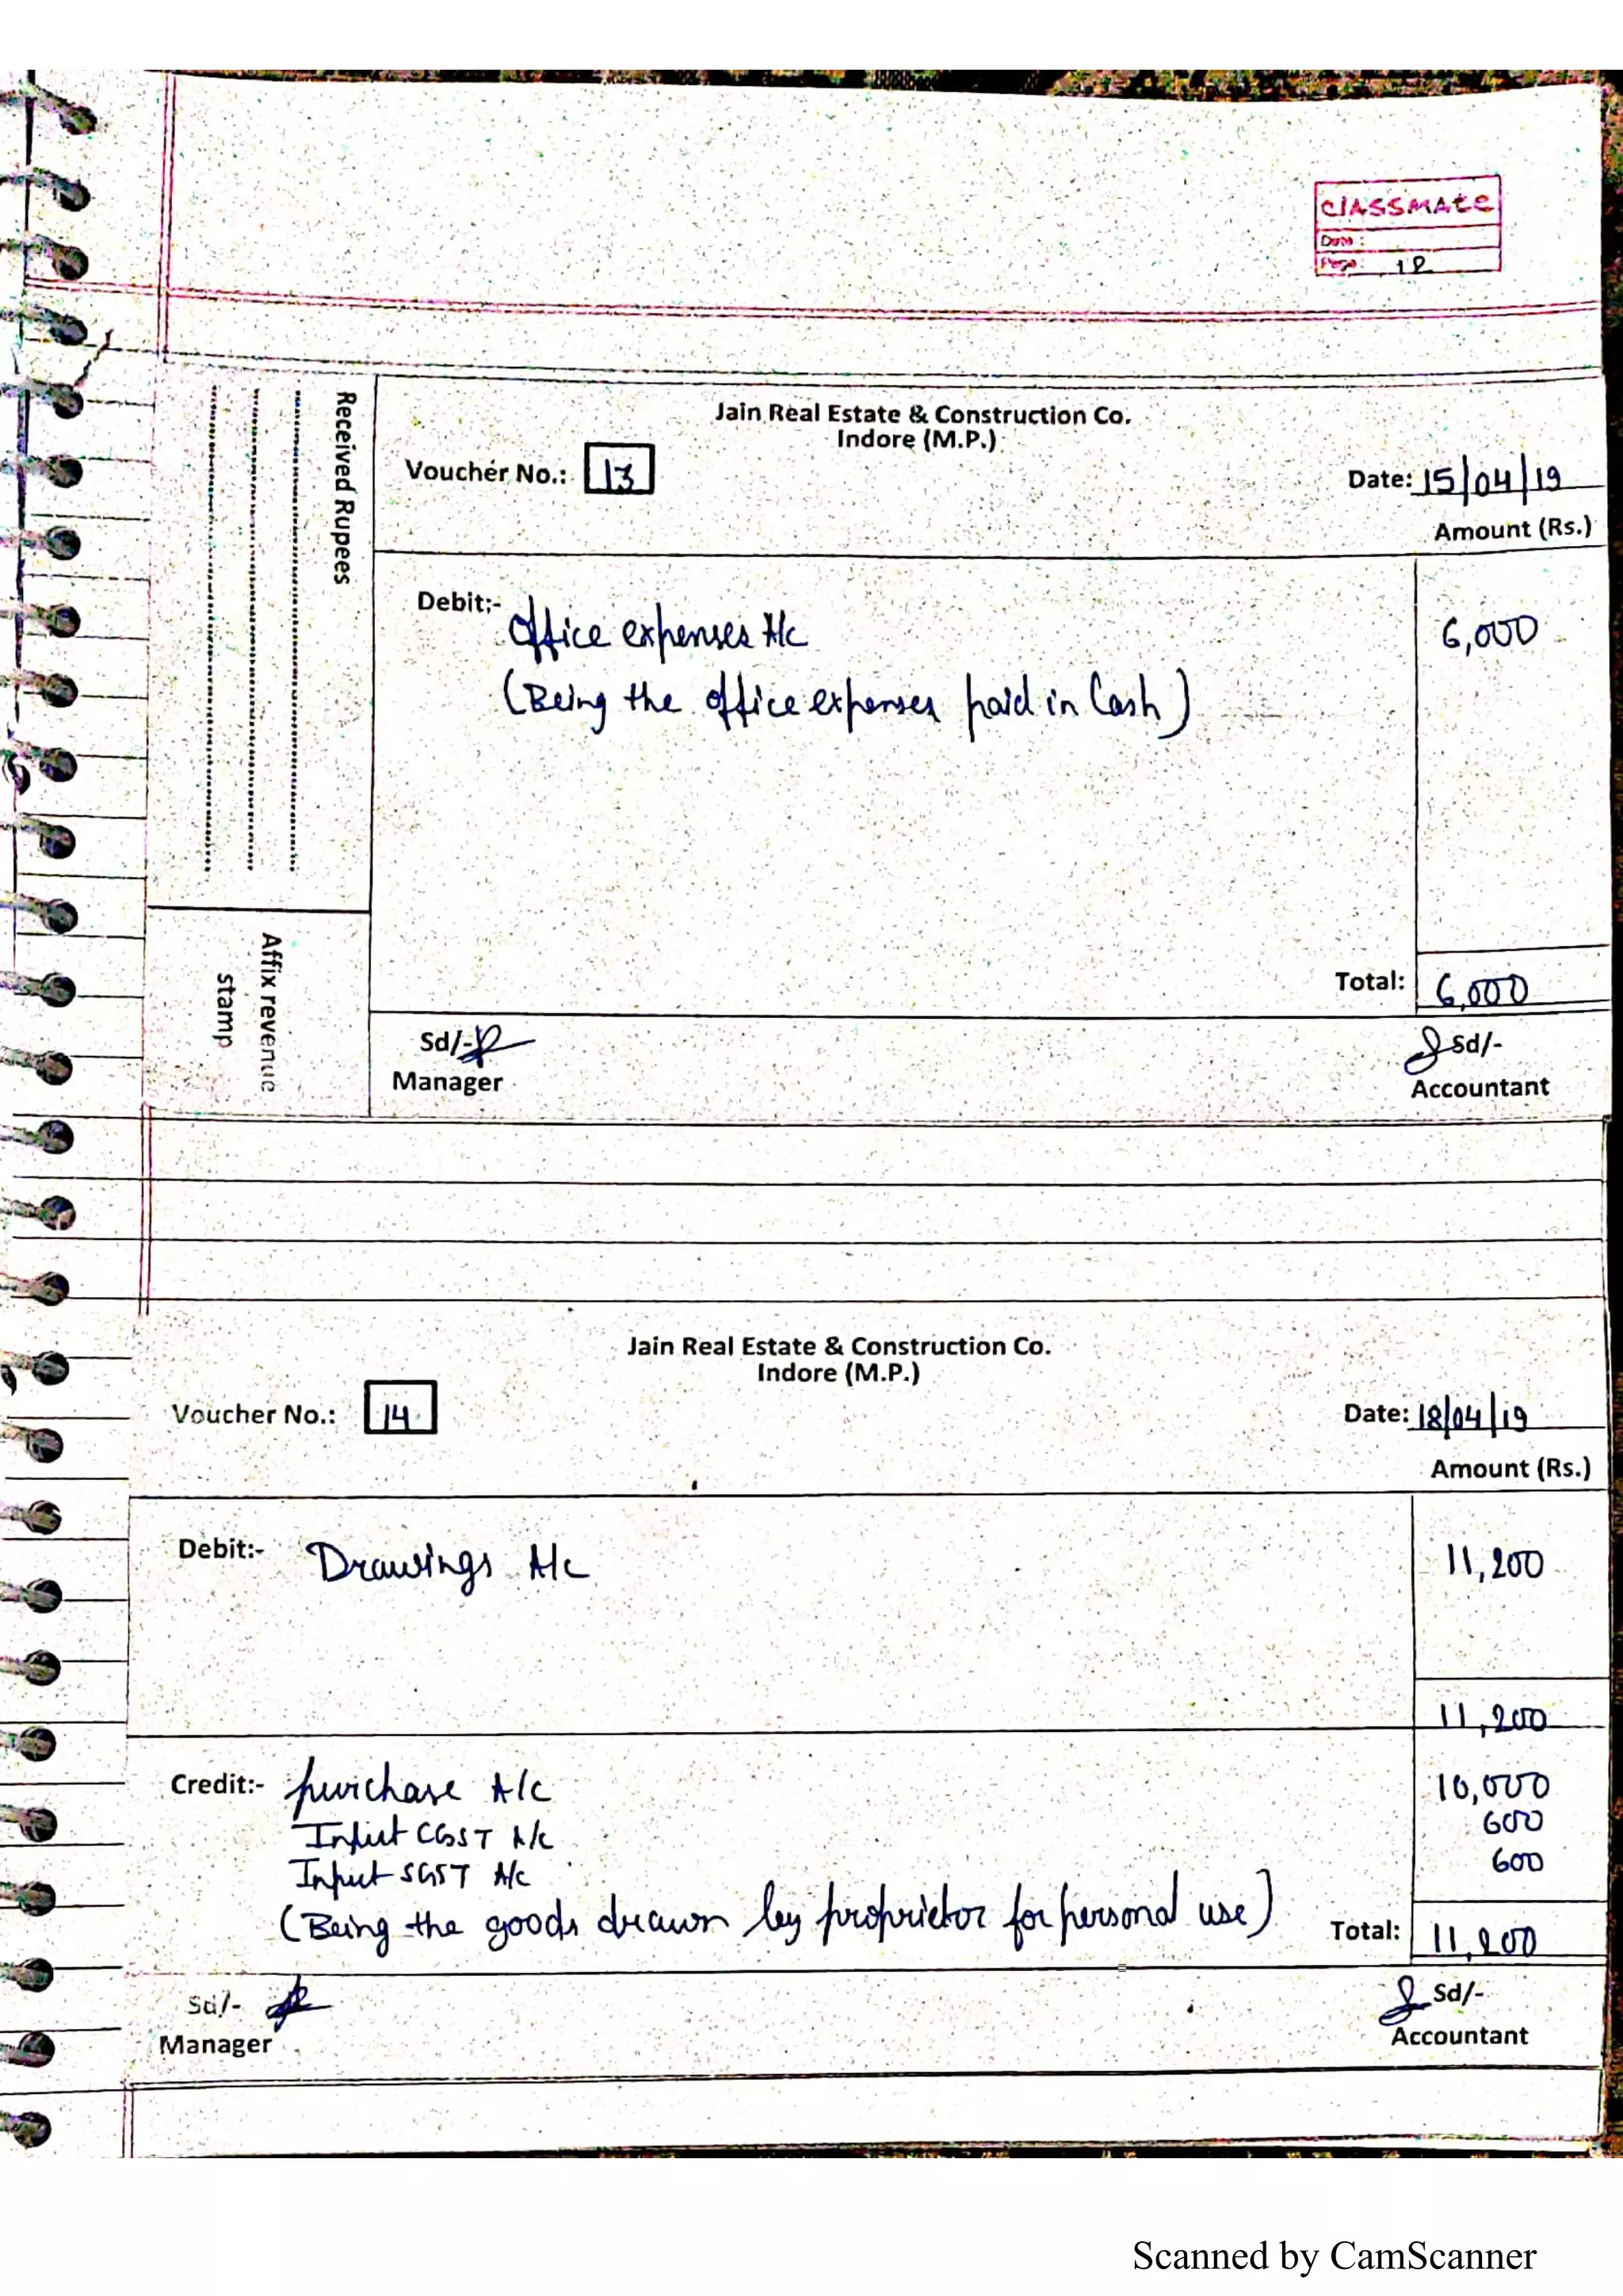 classmate
Date :
Page 12
Received Rupees
Affix revenue
stamp
Jain Real Estate & Construction Co.
Indore (M.P.)
Voucher No.: 13
Date: 15/04/19
Amount (Rs.)
Debit:- Office expenses A/c 6,000
(Being the office expenses paid in Cash)
Total: 6,000
Sd/- Sd/-
Manager Accountant
Jain Real Estate & Construction Co.
Indore (M.P.)
Voucher No.: 14
Date: 18/04/19
Amount (Rs.)
Debit:- Drawings A/c 11,200
11,200
Credit:- purchase A/c 10,000
Input CGST A/c 600
Input SGST A/c 600
(Being the goods drawn by proprietor for personal use) Total: 11,200
Sd/- Sd/-
Manager Accountant
Scanned by CamScanner